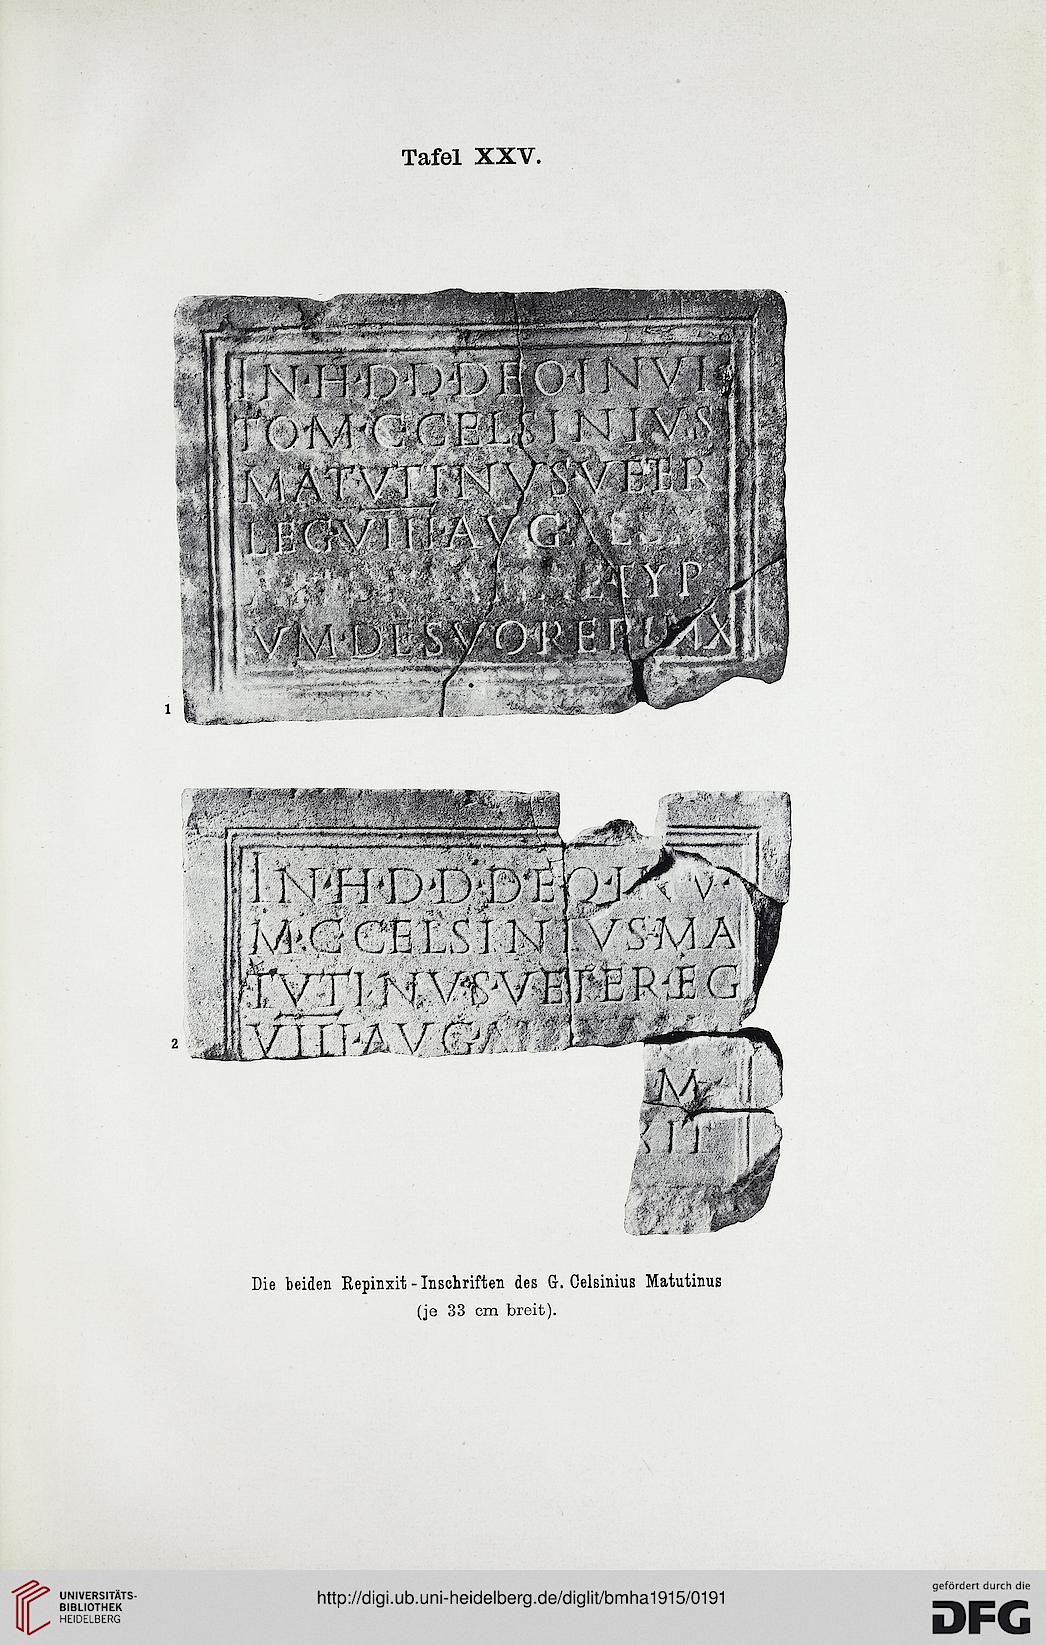 Tafel XXV.
IN·H·D·D·DEO·INVI
TO·M·G·CELSINIVS
MATVTINVS·VETER
LEG·VIII·AVG·
TYP
VM·DE·SVO·REPINX
1
IN·H·D·D·DEO·IN V·
M·G·CELSINIVS·MA
TVTINVS·VETER·LEG
VIII·AVG·
M
XIT
2
Die beiden Repinxit-Inschriften des G. Celsinius Matutinus
(je 33 cm breit).
UNIVERSITÄTS-
BIBLIOTHEK
HEIDELBERG
http://digi.ub.uni-heidelberg.de/diglit/bmha1915/0191
gefördert durch die
DFG